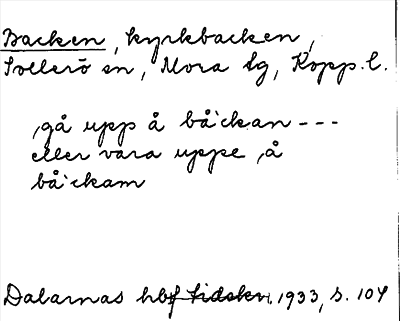 Backen, kyrkbacken,
Sollerö sn, Mora tg, Kopp. l.
,gå upp å bå`ckan ---
eller vara uppe ,å
bå`ckam
Dalarnas hbf tidskr. 1933, s. 104